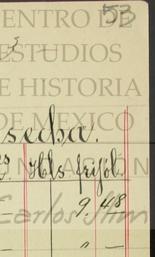 53
CENTRO DE
ESTUDIOS
DE HISTORIA
DE MEXICO
secha.
Hls frijol.
9,48
Carlos Slim
" —